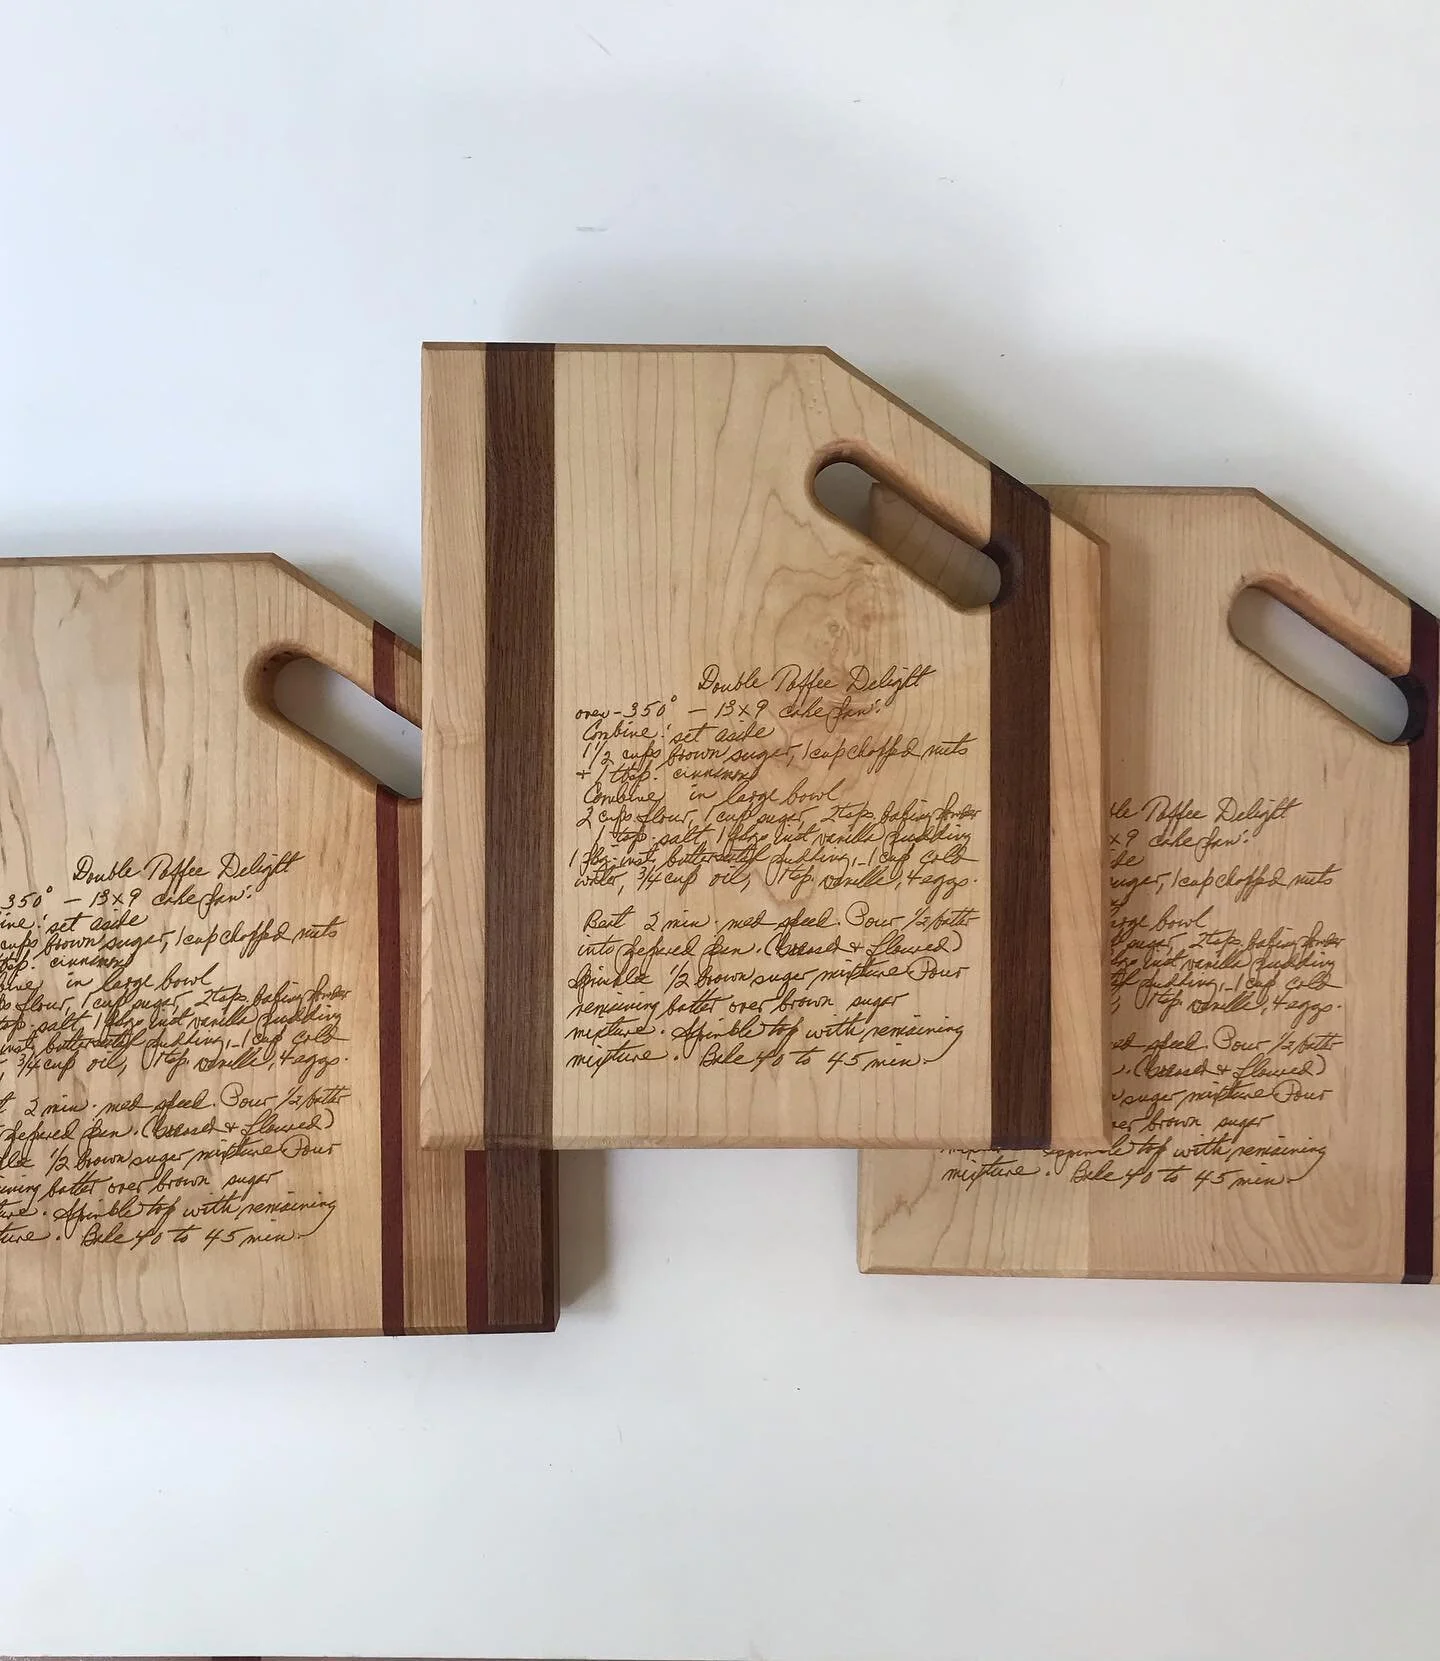 Double Toffee Delight
oven - 350° - 13 x 9 cake pan:
Combine: set aside
1 1/2 cups brown sugar, 1 cup chopped nuts
+ 1 tbsp. cinnimon
Combine in large bowl
2 cups flour, 1 cup sugar, 2 tsp. baking powder
1 tsp. salt, 1 pkg inst vanilla pudding
1 pkg. inst. butterscotch pudding, 1 cup cold
water, 3/4 cup oil, 1 tsp. vanilla, 4 eggs.
Beat 2 min. med speed. Pour 1/2 batter
into prepared pan. (Greased & Floured)
Sprinkle 1/2 brown sugar mixture Pour
remaining batter over brown sugar
mixture. Sprinkle top with remaining
mixture. Bake 40 to 45 min.
Double Toffee Delight
350° - 13 x 9 cake pan:
set aside
cups brown sugar, 1 cup chopped nuts
cinnimon
in large bowl
flour, 1 cup sugar, 2 tsp. baking powder
salt, 1 pkg inst vanilla pudding
inst. butterscotch pudding, 1 cup cold
3/4 cup oil, 1 tsp. vanilla, 4 eggs.
2 min. med speed. Pour 1/2 batter
prepared pan. (Greased & Floured)
1/2 brown sugar mixture Pour
batter over brown sugar
Sprinkle top with remaining
Bake 40 to 45 min.
Toffee Delight
x 9 cake pan:
1 cup chopped nuts
large bowl
sugar, 2 tsp. baking powder
inst vanilla pudding
pudding, 1 cup cold
1 tsp. vanilla, 4 eggs.
speed. Pour 1/2 batter
(Greased & Floured)
sugar mixture Pour
brown sugar
top with remaining
mixture. Bake 40 to 45 min.